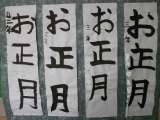 お正月
お正月
お正月
お正月